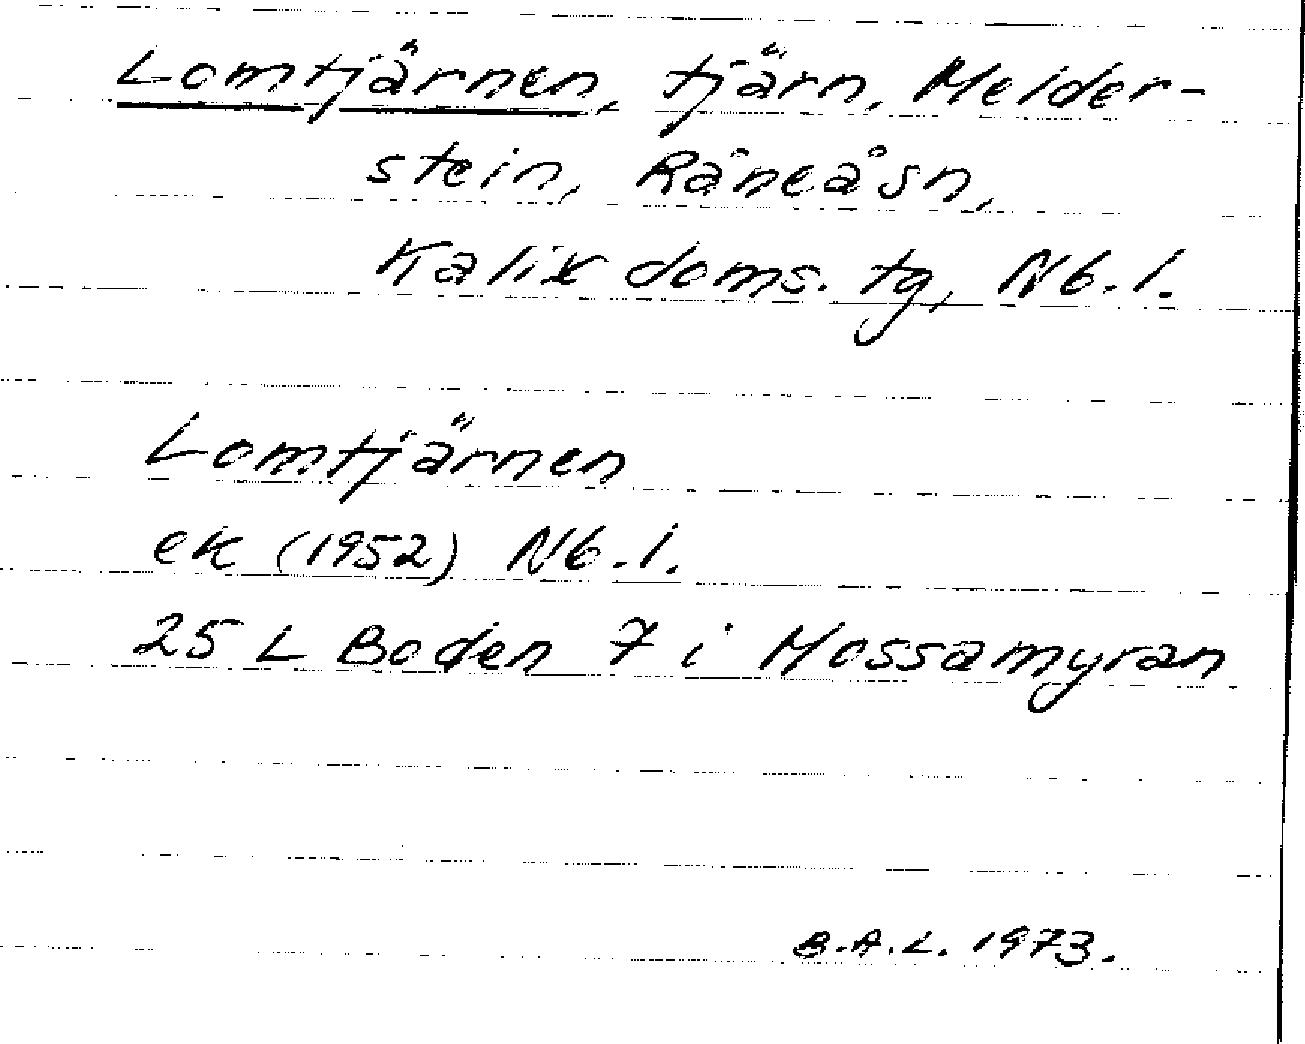 Lomtjärnen, tjärn, Melder-
stein, Råneå sn,
Kalix doms. tg, Nb. l.
Lomtjärnen
ek (1952) Nb. l.
25 L Boden 7 i Mossamyran
B.A.L. 1973.